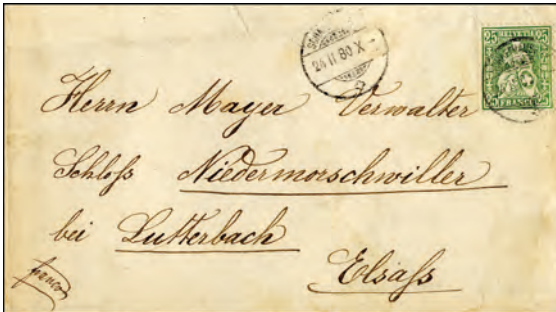 25 HELVETIA 25
FRANCO
24 II 80 X
Herrn Mayer Verwalter
Schloſs Niedermorschwiller
bei Lutterbach
Elsaſs
franco